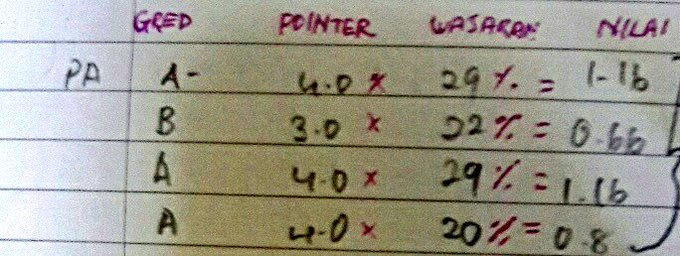 GRED POINTER WAJARAN NILAI
PA A- 4.0 x 29 % = 1.16
B 3.0 x 22 % = 0.66
A 4.0 x 29 % = 1.16
A 4.0 x 20 % = 0.8